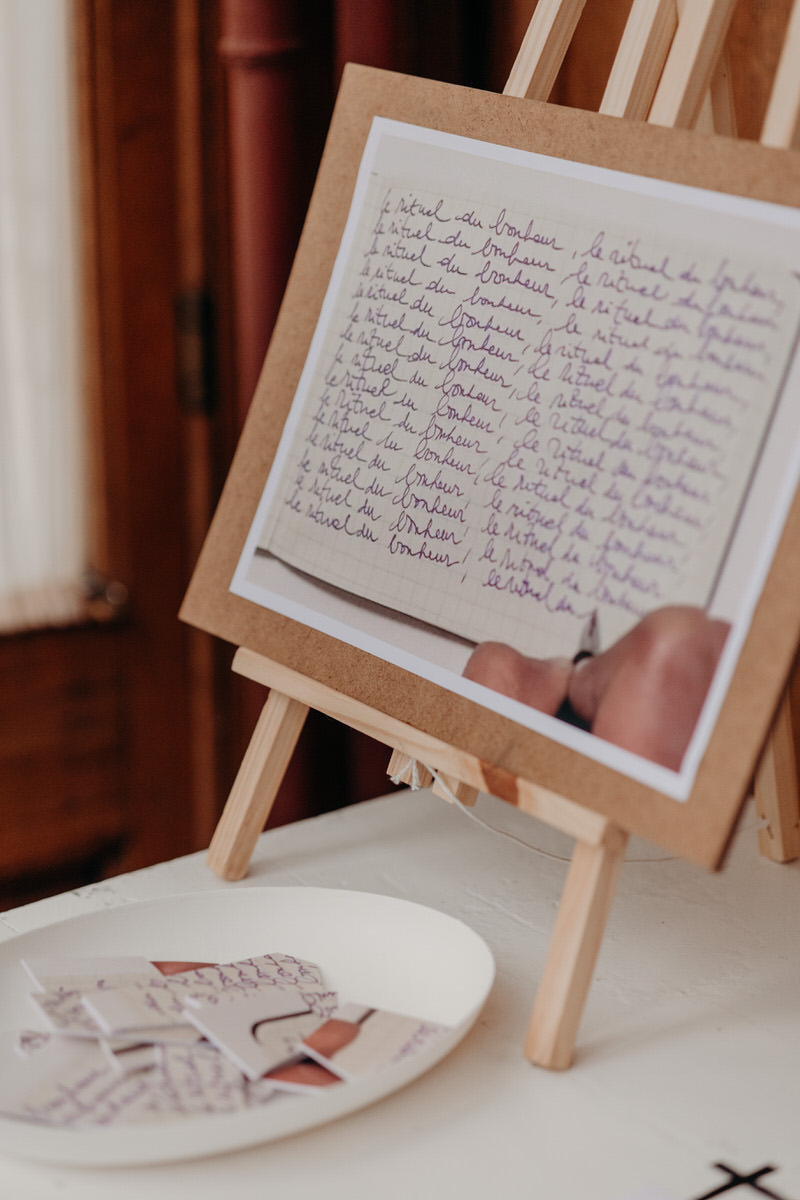 le rituel du bonheur, le rituel du bonheur,
le rituel du bonheur, le rituel du bonheur,
le rituel du bonheur, le rituel du bonheur,
le rituel du bonheur, le rituel du bonheur,
le rituel du bonheur, le rituel du bonheur,
le rituel du bonheur, le rituel du bonheur,
le rituel du bonheur, le rituel du bonheur,
le rituel du bonheur, le rituel du bonheur,
le rituel du bonheur, le rituel du bonheur,
le rituel du bonheur, le rituel du bonheur,
le rituel du bonheur, le rituel du bonheur,
le rituel du bonheur, le rituel du bonheur,
le rituel du bonheur, le rituel du bonheur,
le rituel du bonheur, le rituel du